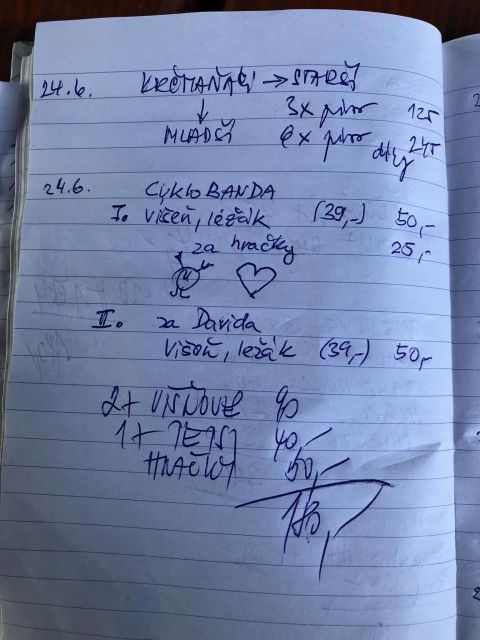 24.6. KRČMAŇÁCI → STARŠÍ
↓ 3x pivo 125
MLADŠÍ 6x pivo 245
díky
24.6. CYKLOBANDA
I. višeň, ležák (39,-) 50,-
za hračky 25,-
II. za Davida
višeň, ležák (39,-) 50,-
2+ VIŠŇOVÉ 90
1+ 40,-
HRAČKY 50,-